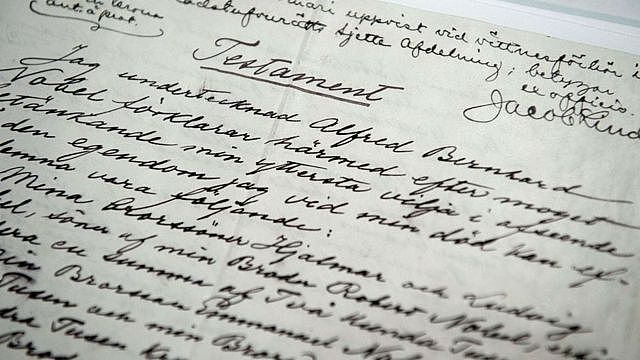 uppvist vid vittnesförhör i
sjette Afdelning; betygar
ex officio.
Testament
Jag undertecknad Alfred Bernhard
Nobel förklarar härmed efter moget
tänkande min yttersta vilja i afseende
den egendom jag vid min död kan ef-
lemna vara följande:
Mina Brorssöner Hjalmar och Ludvig
söner af min Broder Robert Nobel,
en Summa af Två Hundra
Brorsson Emmanuel
Tusen och min
Tusen